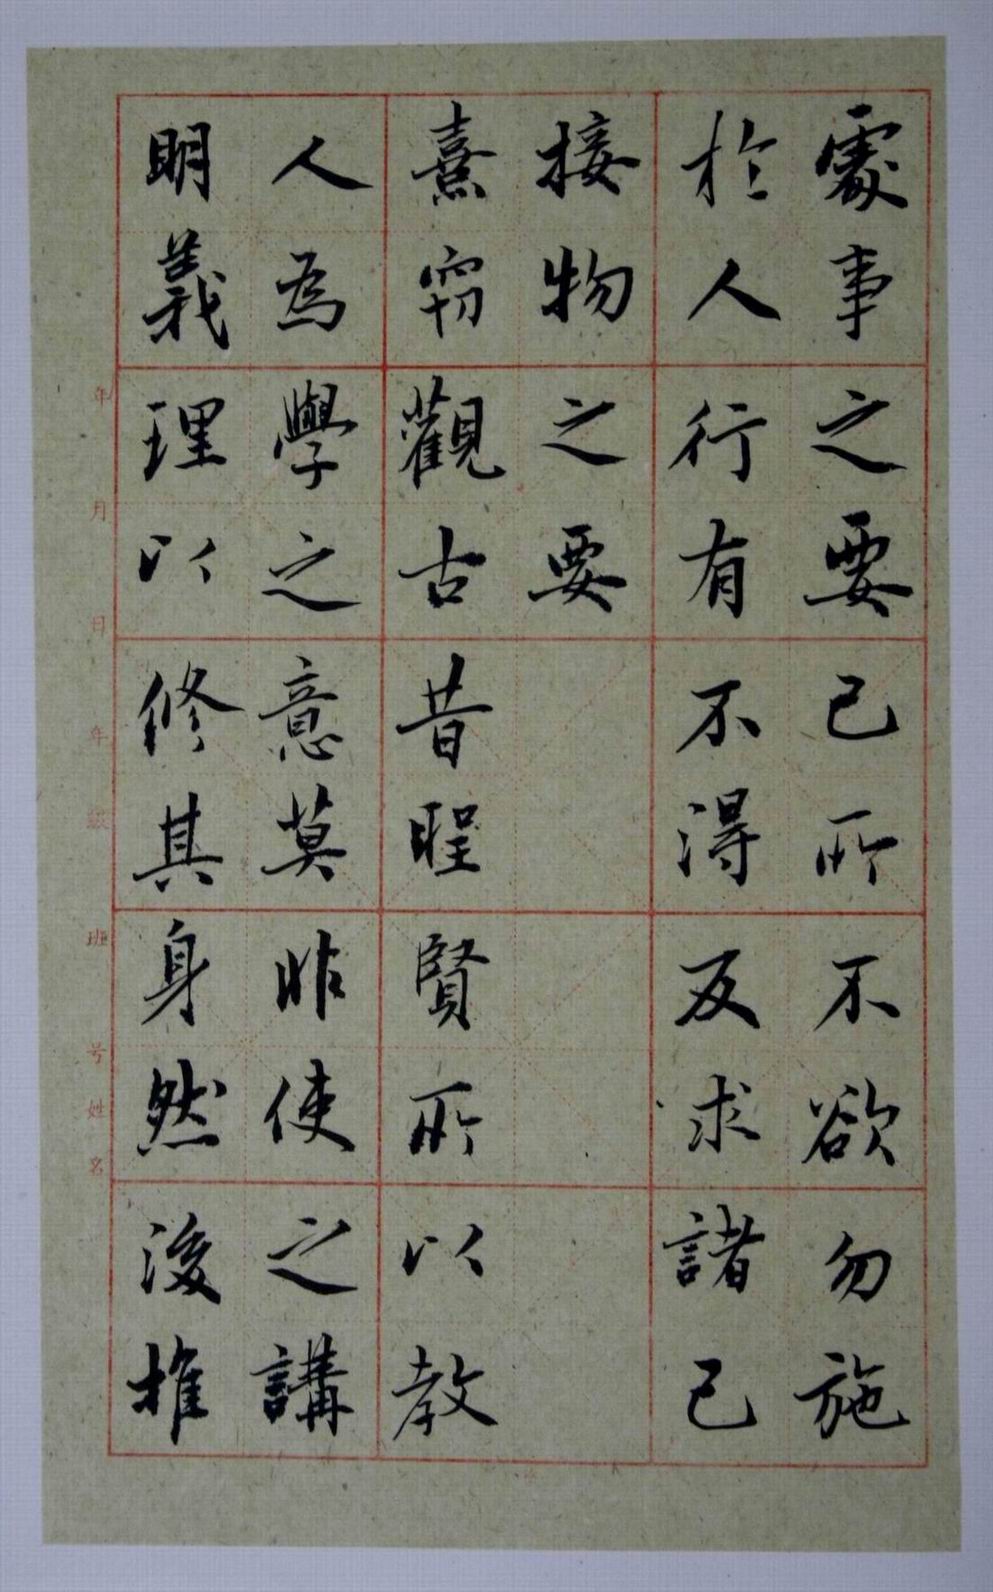 處事之要己所不欲勿施
於人行有不得反求諸己
接物之要
熹竊觀古昔聖賢所以教
人為學之意莫非使之講
明義理以修其身然後推
年 月 日 年 級 班 号 姓 名